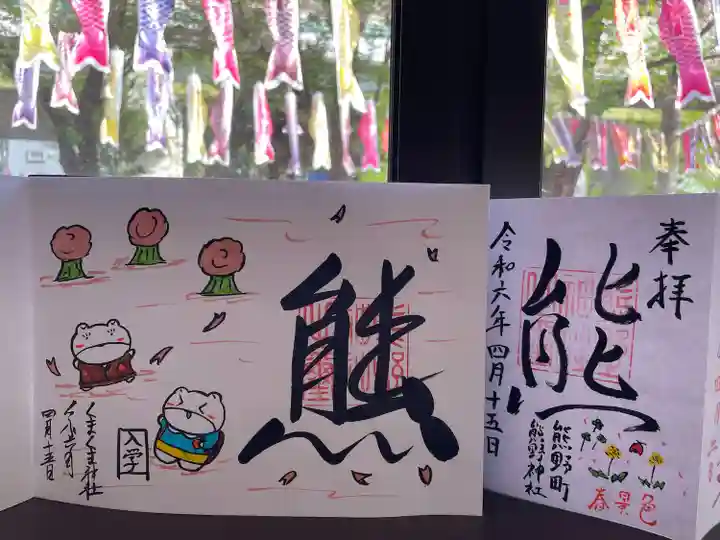 熊
入学
くまくま神社
令和六年
四月十五日
奉拝
熊
令和六年四月十五日
熊野町
熊野神社
春景色